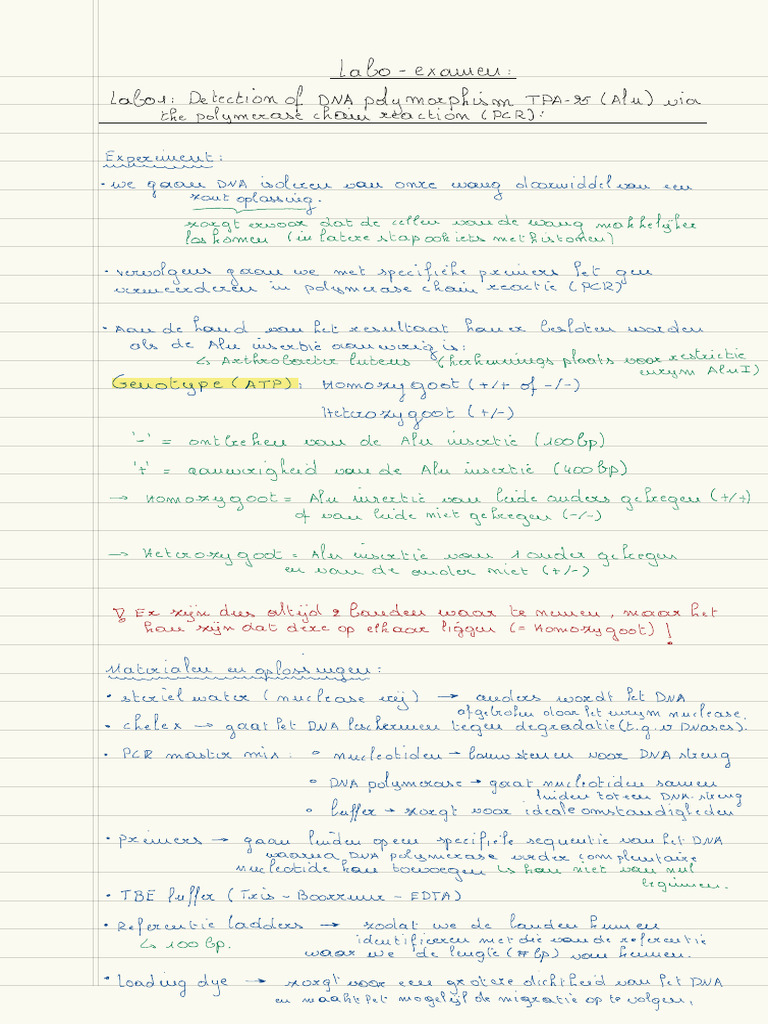 Labo-examen:
Labo1: Detection of DNA polymorphism TPA-25 (Alu) via
the polymerase chain reaction (PCR):
Experiment:
• we gaan DNA isoleren van onze wang doormiddel van een
zout oplossing.
zorgt ervoor dat de cellen van de wang makkelijker
loskomen (in latere stap ook iets met histonen)
• vervolgens gaan we met specifieke primers het gen
vermeerderen in polymerase chain reactie (PCR)
• Aan de hand van het resultaat kan er besloten worden
als de Alu insertie aanwezig is:
↳ Arthrobacter luteus (herkennings plaats voor restrictie
enzym AluI)
Genotype (ATP): Homozygoot (+/+ of -/-)
Heterozygoot (+/-)
'-' = ontbreken van de Alu insertie (100bp)
'+' = aanwezigheid van de Alu insertie (400bp)
→ Homozygoot = Alu insertie van beide ouders gekregen (+/+)
of van beide niet gekregen (-/-)
→ Heterozygoot = Alu insertie van 1 ouder gekregen
en van de ander niet (+/-)
Er zijn dus altijd 2 banden waar te nemen, maar het
kan zijn dat deze op elkaar liggen (= Homozygoot) !
Materialen en oplossingen:
• steriel water (nuclease vrij) → anders wordt het DNA
afgebroken door het enzym nuclease.
• chelex → gaat het DNA beschermen tegen degradatie (t.g.v DNases).
• PCR master mix: ∘ nucleotiden → bouwstenen voor DNA streng
∘ DNA polymerase → gaat nucleotiden samen
binden tot een DNA-streng
∘ buffer → zorgt voor ideale omstandigheden
• Primers → gaan binden op een specifieke sequentie van het DNA
waarna DNA polymerase verder complentaire
nucleotide kan toevoegen ↳ kan niet van nul
beginnen.
• TBE buffer (Tris - Boorzuur - EDTA)
• Referentie ladders → zodat we de banden kunnen
↳ 100 bp. identificeren met die van de referentie
waar we de lengte (# bp) van kennen.
• Loading dye → zorgt voor een grotere dichtheid van het DNA
en maakt het mogelijk de migratie op te volgen,